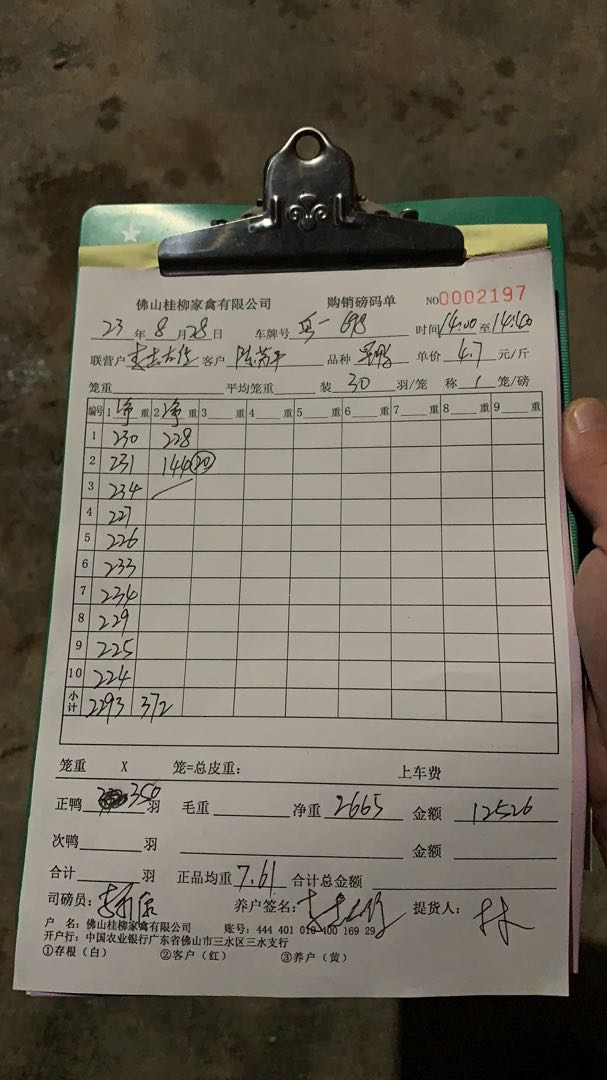 佛山桂柳家禽有限公司 购销磅码单 NO0002197
23年8月28日 车牌号 698 时间14:00至14:40
联营户 客户 品种 单价4.7元/斤
笼重 平均笼重 装30羽/笼 称1笼/磅
编号 1净重 2净重 3重 4重 5重 6重 7重 8重 9重
1 230 228
2 231 144 20
3 234
4 227
5 226
6 233
7 234
8 229
9 225
10 224
小计 2293 372
笼重 X 笼=总皮重: 上车费
正鸭350羽 毛重 净重2665 金额12526
次鸭 羽 金额
合计 羽 正品均重7.61 合计总金额
司磅员: 养户签名: 提货人:
户 名: 佛山桂柳家禽有限公司 账号: 444 401 010 400 169 29
开户行: 中国农业银行广东省佛山市三水区三水支行
①存根（白） ②客户（红） ③养户（黄）